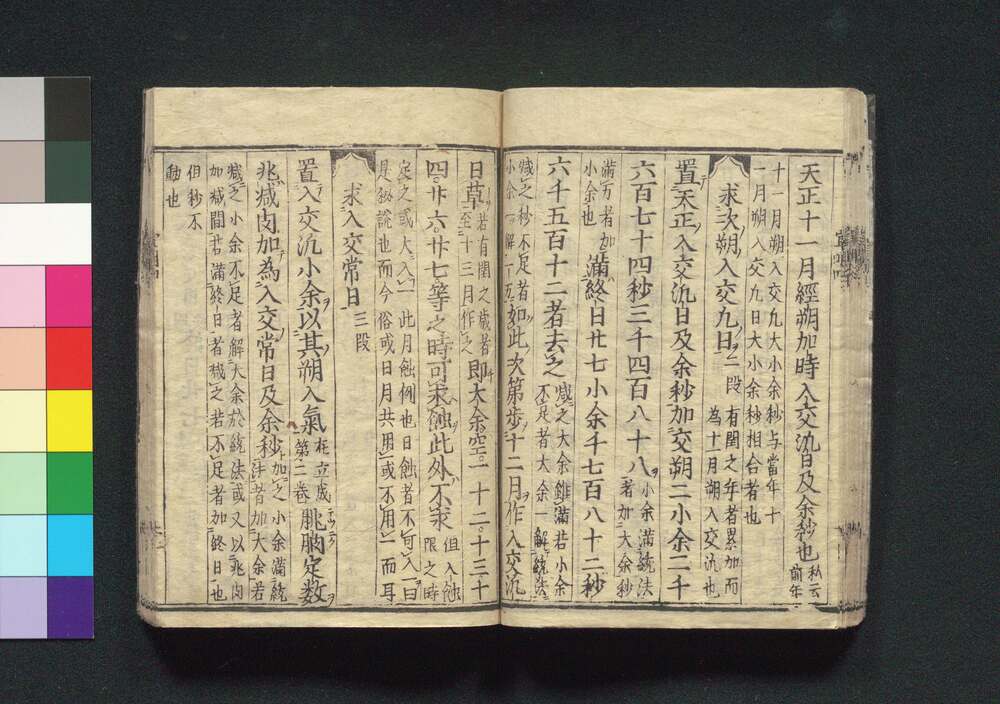 天正十一月經朔加時入交汎日及余秒也 私云前年
十一月朔入交九大小余秒与當年十
一月朔入交九日大小余秒相合者也
求次朔入交九日 二段 有閏之年者累加而為十二月朔入交汎也
置天正入交汎日及余秒加交朔二小余二千
六百七十四秒三千四百八十八 小余満統法者加二大余秒
満万者加小余也 満終日廿七小余千七百八十二秒
六千五百十二者去之 減之大余雖満若小余不足者大余一解統法
減之秒不足者小余一解一万 如此次第歩十二月作入交汎
日草 若有閏之歳者至十三月作之 即大余空一十二十三十
四廿六廿七等之時可求蝕此外不求 但入蝕限之時
定之或大入一此月蝕例也日蝕者不可入一曰
是秘説也而今俗或日月共用或不用一而耳
求入交常日 三段
置入交汎小余以其朔入氣 在立成第二巻 朓朒定数
兆減肉加為入交常日及余秒 加之小余満統法者加大余若
減之小余不足者解大余於統法或又以兆肉
加減間若満終日者減之若不足者加終日也
但秒不
動也